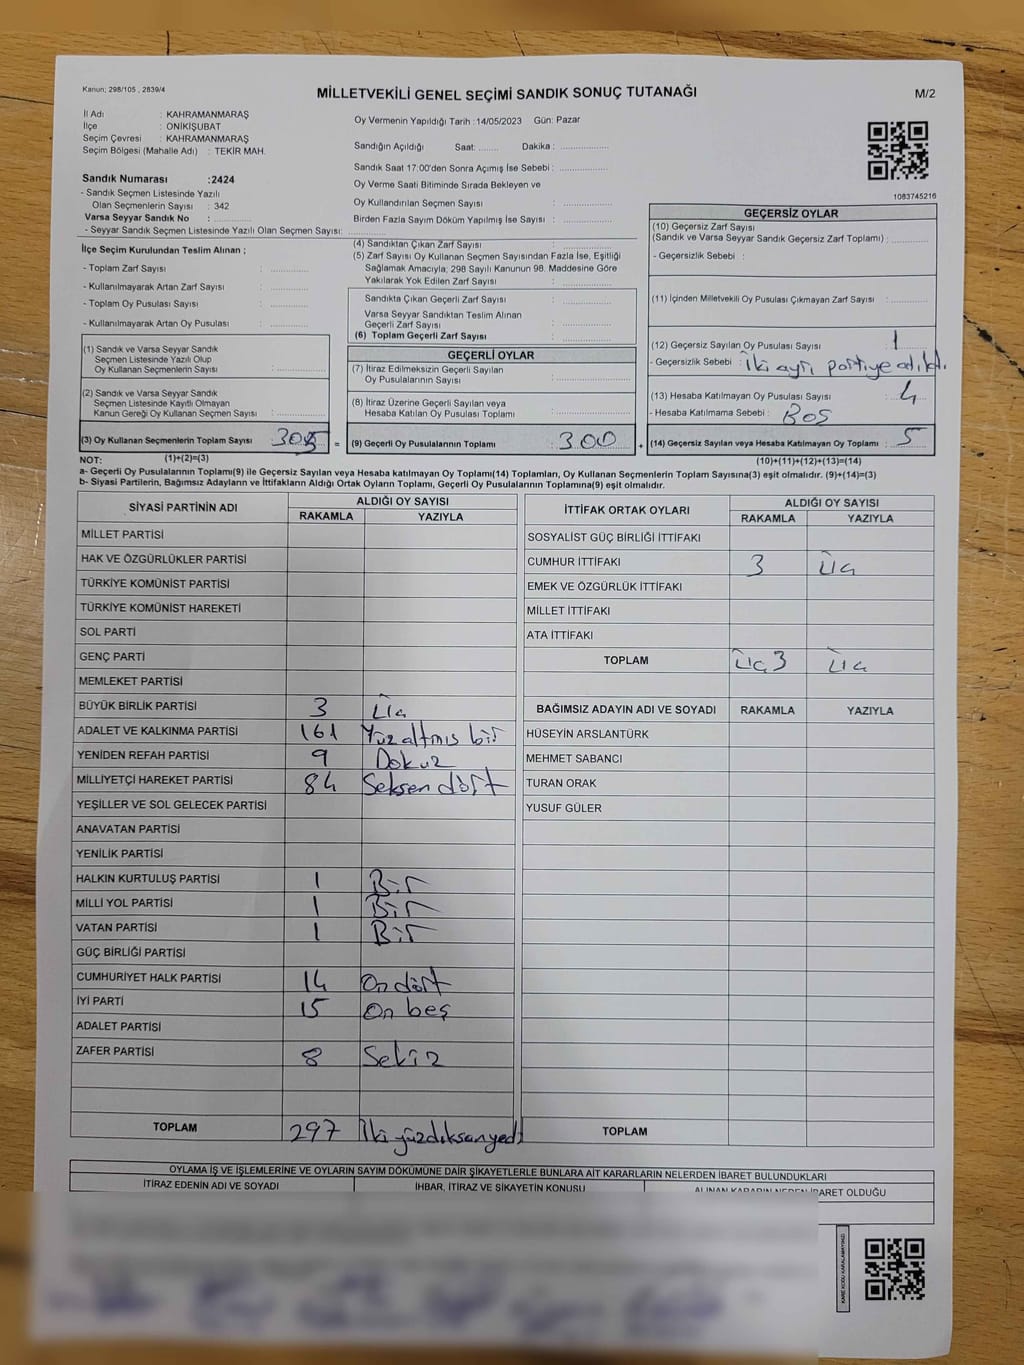 Kanun; 298/105 , 2839/4
MİLLETVEKİLİ GENEL SEÇİMİ SANDIK SONUÇ TUTANAĞI
M/2
İl Adı : KAHRAMANMARAŞ
İlçe : ONİKİŞUBAT
Seçim Çevresi : KAHRAMANMARAŞ
Seçim Bölgesi (Mahalle Adı) : TEKİR MAH.
Oy Vermenin Yapıldığı Tarih :14/05/2023 Gün: Pazar
Sandığın Açıldığı Saat: ........ Dakika : ..................
Sandık Saat 17:00'den Sonra Açımış İse Sebebi : ..................
Oy Verme Saati Bitiminde Sırada Bekleyen ve
Oy Kullandırılan Seçmen Sayısı : ..................
Birden Fazla Sayım Döküm Yapılmış İse Sayısı : ..................
1083745216
Sandık Numarası :2424
- Sandık Seçmen Listesinde Yazılı
Olan Seçmenlerin Sayısı : 342
Varsa Seyyar Sandık No : ..................
- Seyyar Sandık Seçmen Listesinde Yazılı Olan Seçmen Sayısı: ..................
İlçe Seçim Kurulundan Teslim Alınan ;
- Toplam Zarf Sayısı : ..................
- Kullanılmayarak Artan Zarf Sayısı : ..................
- Toplam Oy Pusulası Sayısı : ..................
- Kullanılmayarak Artan Oy Pusulası : ..................
(1) Sandık ve Varsa Seyyar Sandık
Seçmen Listesinde Yazılı Olup
Oy Kullanan Seçmenlerin Sayısı : ..................
(2) Sandık ve Varsa Seyyar Sandık
Seçmen Listesinde Kayıtlı Olmayan
Kanun Gereği Oy Kullanan Seçmen Sayısı : ..................
(3) Oy Kullanan Seçmenlerin Toplam Sayısı 305 =
(4) Sandıktan Çıkan Zarf Sayısı : ..................
(5) Zarf Sayısı Oy Kullanan Seçmen Sayısından Fazla İse, Eşitliği
Sağlamak Amacıyla; 298 Sayılı Kanunun 98. Maddesine Göre
Yakılarak Yok Edilen Zarf Sayısı : ..................
Sandıkta Çıkan Geçerli Zarf Sayısı : ..................
Varsa Seyyar Sandıktan Teslim Alınan
Geçerli Zarf Sayısı : ..................
(6) Toplam Geçerli Zarf Sayısı : ..................
GEÇERLİ OYLAR
(7) İtiraz Edilmeksizin Geçerli Sayılan
Oy Pusulalarının Sayısı : ..................
(8) İtiraz Üzerine Geçerli Sayılan veya
Hesaba Katılan Oy Pusulası Toplamı : ..................
(9) Geçerli Oy Pusulalarının Toplamı : 300 +
GEÇERSİZ OYLAR
(10) Geçersiz Zarf Sayısı
(Sandık ve Varsa Seyyar Sandık Geçersiz Zarf Toplamı) : ..................
- Geçersizlik Sebebi :
(11) İçinden Milletvekili Oy Pusulası Çıkmayan Zarf Sayısı : ..................
(12) Geçersiz Sayılan Oy Pusulası Sayısı : 1
- Geçersizlik Sebebi : İki ayrı partiye atıldı.
(13) Hesaba Katılmayan Oy Pusulası Sayısı : 4
- Hesaba Katılmama Sebebi : BOŞ
(14) Geçersiz Sayılan veya Hesaba Katılmayan Oy Toplamı : 5
NOT: (1)+(2)=(3)
(10)+(11)+(12)+(13)=(14)
a- Geçerli Oy Pusulalarının Toplamı(9) ile Geçersiz Sayılan veya Hesaba katılmayan Oy Toplamı(14) Toplamları, Oy Kullanan Seçmenlerin Toplam Sayısına(3) eşit olmalıdır. (9)+(14)=(3)
b- Siyasi Partilerin, Bağımsız Adayların ve İttifakların Aldığı Ortak Oyların Toplamı, Geçerli Oy Pusulalarının Toplamına(9) eşit olmalıdır.
SİYASİ PARTİNİN ADI ALDIĞI OY SAYISI
RAKAMLA YAZIYLA
MİLLET PARTİSİ
HAK VE ÖZGÜRLÜKLER PARTİSİ
TÜRKİYE KOMÜNİST PARTİSİ
TÜRKİYE KOMÜNİST HAREKETİ
SOL PARTİ
GENÇ PARTİ
MEMLEKET PARTİSİ
BÜYÜK BİRLİK PARTİSİ 3 Üç
ADALET VE KALKINMA PARTİSİ 161 Yüzaltmış bir
YENİDEN REFAH PARTİSİ 9 Dokuz
MİLLİYETÇİ HAREKET PARTİSİ 84 Seksen dört
YEŞİLLER VE SOL GELECEK PARTİSİ
ANAVATAN PARTİSİ
YENİLİK PARTİSİ
HALKIN KURTULUŞ PARTİSİ 1 Bir
MİLLİ YOL PARTİSİ 1 Bir
VATAN PARTİSİ 1 Bir
GÜÇ BİRLİĞİ PARTİSİ
CUMHURİYET HALK PARTİSİ 14 On dört
İYİ PARTİ 15 On beş
ADALET PARTİSİ
ZAFER PARTİSİ 8 Sekiz
TOPLAM 297 İki yüzdıksanyedi
İTTİFAK ORTAK OYLARI ALDIĞI OY SAYISI
RAKAMLA YAZIYLA
SOSYALİST GÜÇ BİRLİĞİ İTTİFAKI
CUMHUR İTTİFAKI 3 Üç
EMEK VE ÖZGÜRLÜK İTTİFAKI
MİLLET İTTİFAKI
ATA İTTİFAKI
TOPLAM Üç3 Üç
BAĞIMSIZ ADAYIN ADI VE SOYADI RAKAMLA YAZIYLA
HÜSEYİN ARSLANTÜRK
MEHMET SABANCI
TURAN ORAK
YUSUF GÜLER
TOPLAM
OYLAMA İŞ VE İŞLEMLERİNE VE OYLARIN SAYIM DÖKÜMÜNE DAİR ŞİKAYETLERLE BUNLARA AİT KARARLARIN NELERDEN İBARET BULUNDUKLARI
İTİRAZ EDENİN ADI VE SOYADI İHBAR, İTİRAZ VE ŞİKAYETİN KONUSU ALINAN KARARIN NEDEN İBARET OLDUĞU
KARE KODU KARALAMAYINIZ!